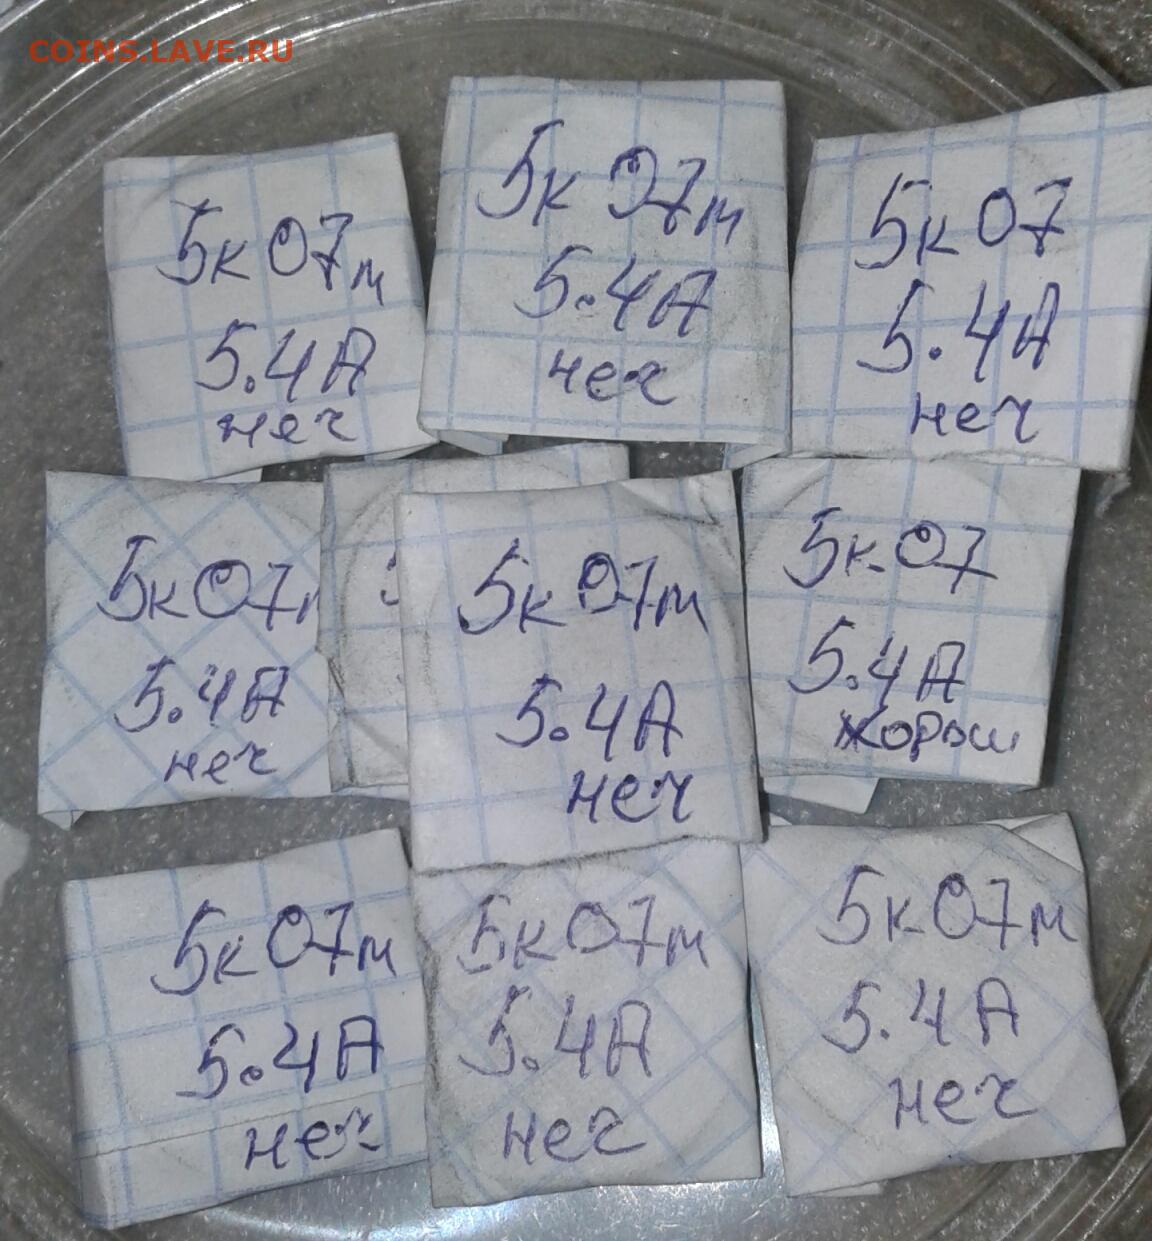 COINS.LAVE.RU
5к 07м
5.4А
неч
5к 07м
5.4А
неч
5к 07
5.4А
неч
5к 07
5.4А
неч
5к 07м
5.4А
неч
5к 07
5.4А
хорош
5к 07м
5.4А
неч
5к 07м
5.4А
неч
5к 07м
5.4А
неч